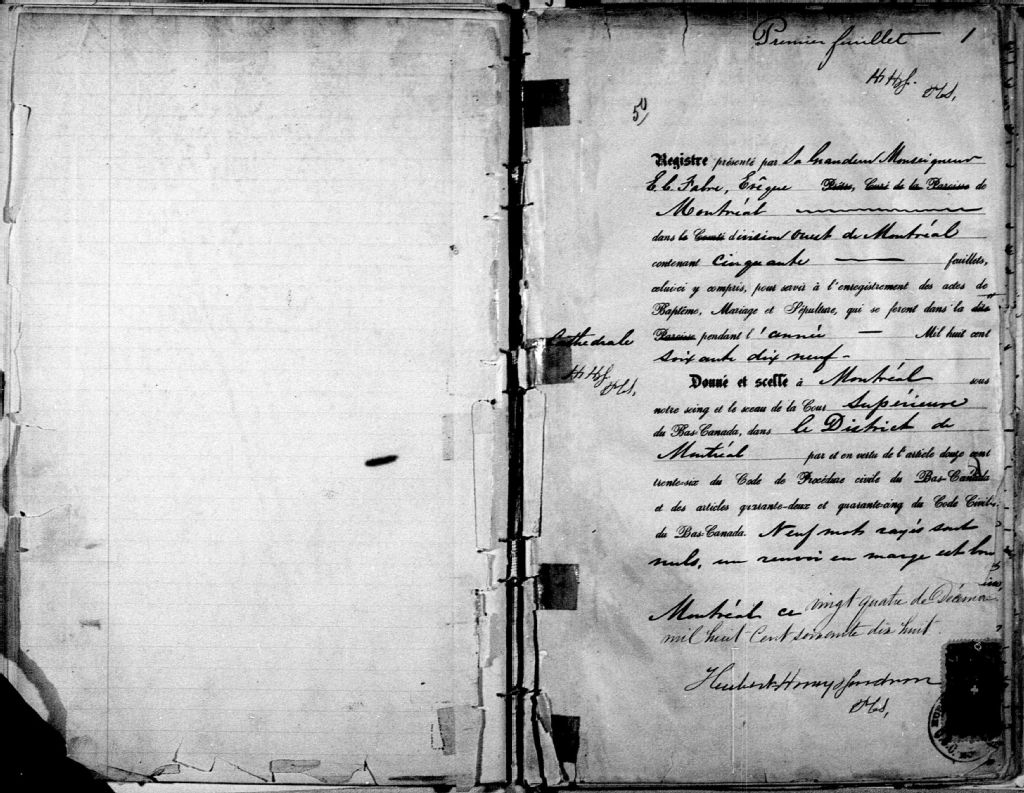 Premier feuillet 1
H H G.
DPCS,
5)
Registre présenté par Sa Grandeur Monseigneur
E C. Fabre, Evêque Prêtre, Curé de la Paroisse de
Montréal
dans le Comté division ouest de Montréal
contenant cinquante feuillets,
celui-ci y compris, pour servir à l'enregistrement des actes de
Baptême, Mariage et Sépulture, qui se feront dans la dite
Cathédrale
Paroisse, pendant l'année Mil huit cent
soixante dix neuf -
Donné et scellé à Montréal sous
notre seing et le sceau de la Cour Supérieure
du Bas-Canada, dans le District de
Montréal par et en vertu de l'article douze cent
trente-six du Code de Procédure civile du Bas-Canada
et des articles quarante-deux et quarante-cinq du Code Civil
du Bas-Canada. Neuf mots rayés sont
nuls, un renvoi en marge est bon
Montréal ce vingt quatre de Décembre
mil huit Cent soixante dix huit